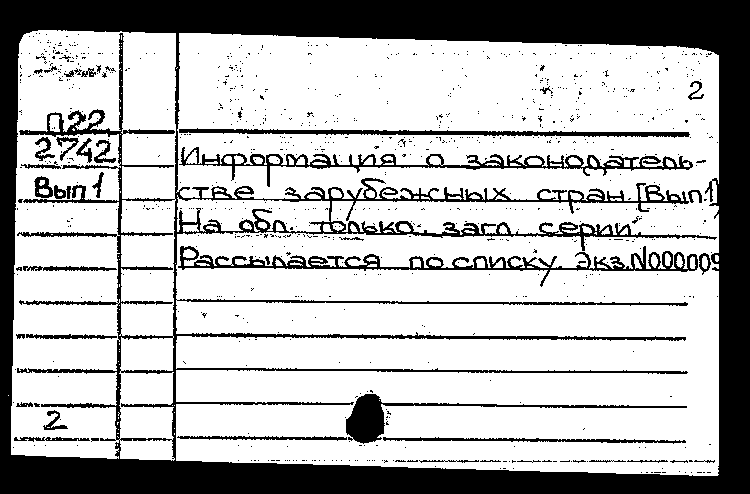 2
П22
2742
Вып 1
Информация о законодатель-
стве зарубежных стран. [Вып.1]
На обл. только загл. серии.
Рассылается по списку. Экз. N000009
2